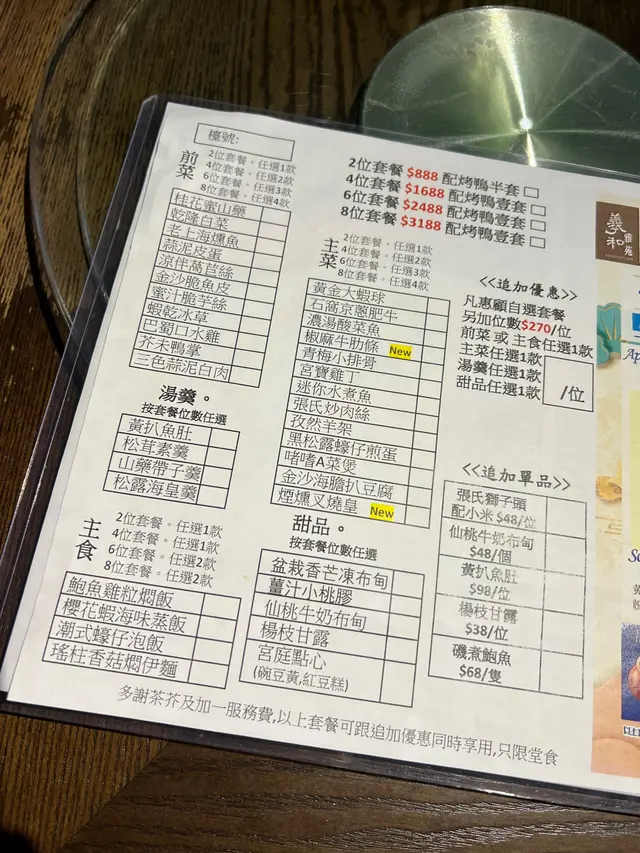 檯號:
前菜
2位套餐。任選1款
4位套餐。任選2款
6位套餐。任選3款
8位套餐。任選4款
桂花蜜山藥
乾隆白菜
老上海燻魚
蒜泥皮蛋
涼伴萵苣絲
金沙脆魚皮
蜜汁脆芋絲
蝦乾冰草
巴蜀口水雞
芥末鴨掌
三色蒜泥白肉
湯羹。
按套餐位數任選
黃扒魚肚
松茸素羹
山藥帶子羹
松露海皇羹
主食
2位套餐。任選1款
4位套餐。任選1款
6位套餐。任選2款
8位套餐。任選2款
鮑魚雞粒燜飯
櫻花蝦海味蒸飯
潮式蠔仔泡飯
瑤柱香菇燜伊麵
2位套餐 $888 配烤鴨半套
4位套餐 $1688 配烤鴨壹套
6位套餐 $2488 配烤鴨壹套
8位套餐 $3188 配烤鴨壹套
主菜
2位套餐。任選1款
4位套餐。任選2款
6位套餐。任選3款
8位套餐。任選4款
黃金大蝦球
石窩京蔥肥牛
濃湯酸菜魚
椒麻牛肋條 New
青梅小排骨
宮寶雞丁
迷你水煮魚
張氏炒肉絲
孜然羊架
黑松露蠔仔煎蛋
啫啫A菜煲
金沙海膽扒豆腐
煙燻叉燒皇 New
甜品。
按套餐位數任選
盆栽香芒凍布甸
薑汁小桃膠
仙桃牛奶布甸
楊枝甘露
宮庭點心
(碗豆黃,紅豆糕)
<<追加優惠>>
凡惠顧自選套餐
另加位數$270/位
前菜 或 主食任選1款
主菜任選1款
湯羹任選1款
甜品任選1款
/位
<<追加單品>>
張氏獅子頭
配小米 $48/位
仙桃牛奶布甸
$48/個
黃扒魚肚
$98/位
楊枝甘露
$38/位
磯煮鮑魚
$68/隻
多謝茶芥及加一服務費,以上套餐可跟追加優惠同時享用,只限堂食
義和雅苑